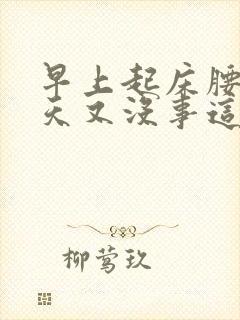 早上起床腰
天又没事這
柳莺玖